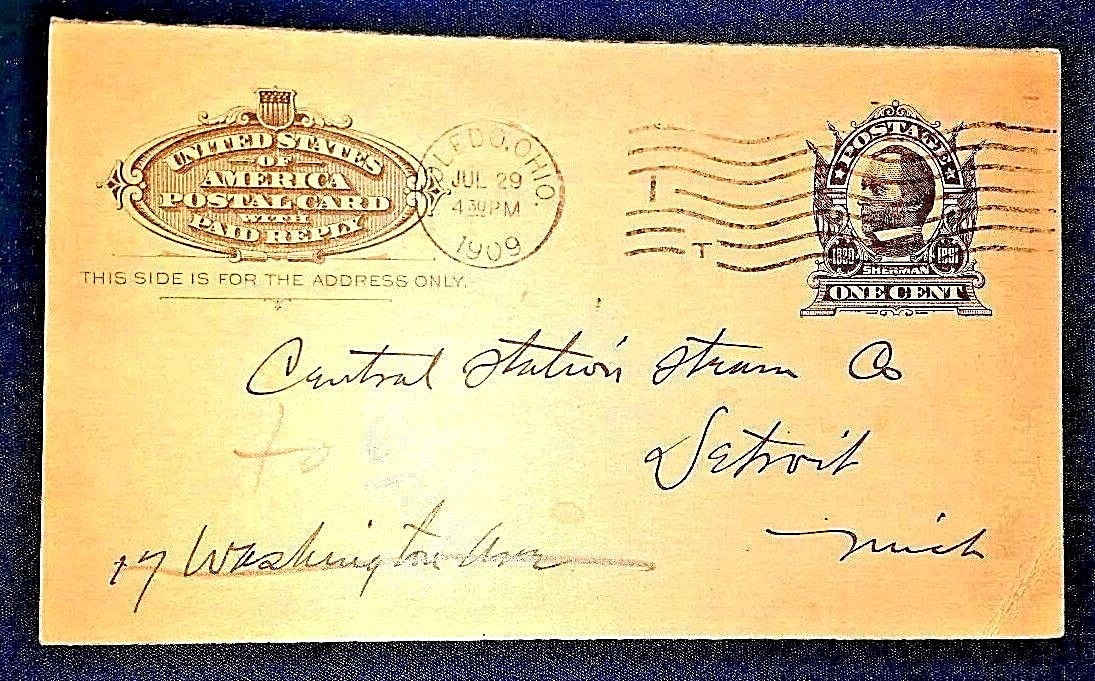 UNITED STATES
OF
AMERICA
POSTAL CARD
WITH
PAID REPLY
THIS SIDE IS FOR THE ADDRESS ONLY.
TOLEDO, OHIO.
JUL 29
4 30 PM
1909
1
T
POSTAGE
SHERMAN
ONE CENT
Central Station Steam Co
Detroit
Mich
to
17 Washington Ave